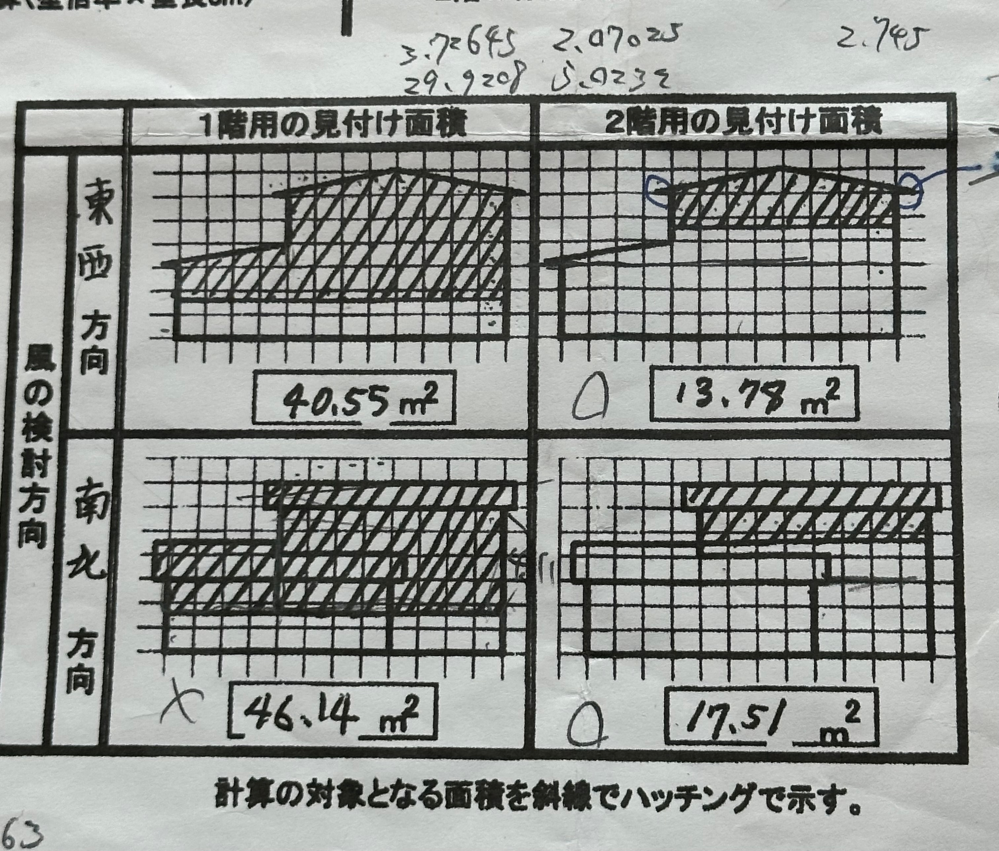 3.72645 2.07025 2.745
29.9208 5.0232
1階用の見付け面積 2階用の見付け面積
風の検討方向
東西方向
40.55 m²
13.78 m²
南北方向
46.14 m²
17.51 m²
計算の対象となる面積を斜線でハッチングで示す。
63